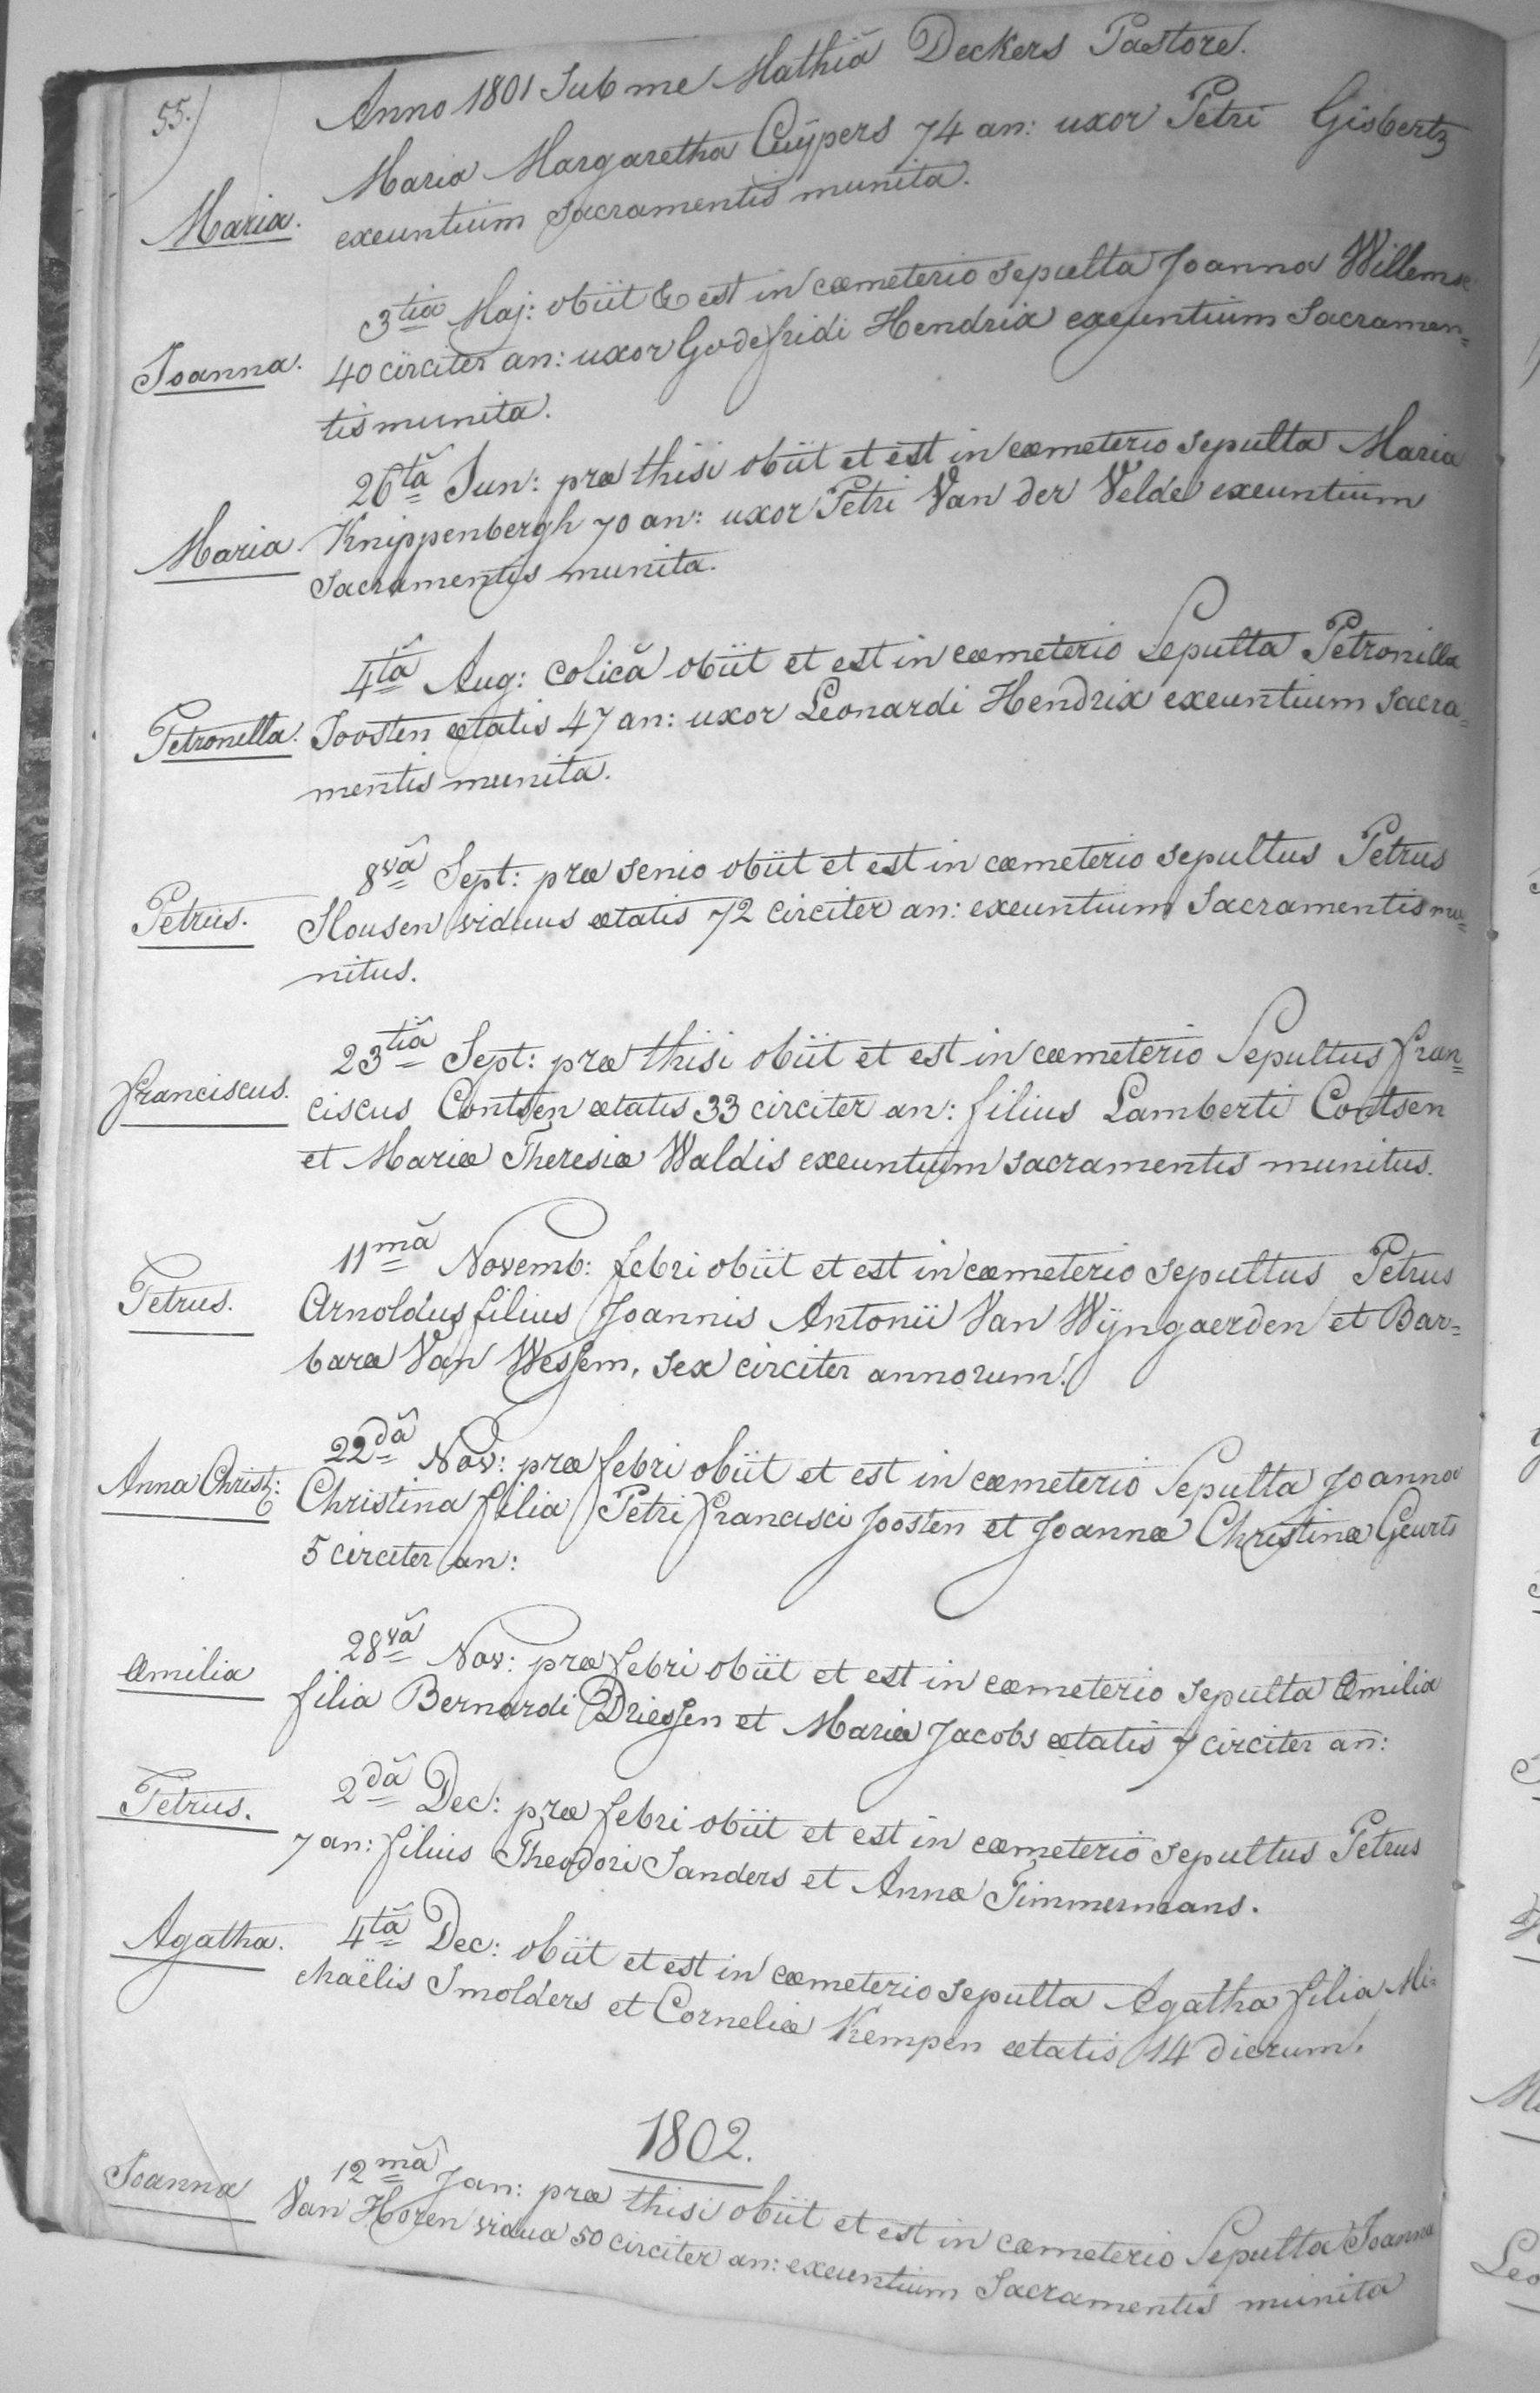 55.)
Anno 1801 Sub me Mathiâ Deckers Pastore.
Maria Margaretha Cuÿpers 74 an: uxor Petri Gisbertz
Maria.
exeuntium sacramentis munita.
3tiâ Maj: obiit & est in cœmeterio sepulta Joanna Willemse
Joanna.
40 circiter an: uxor Godefridi Hendrix exeuntium Sacramen=
tis munita.
26tâ Jun: præ thisi obiit et est in cœmeterio sepulta Maria
Maria
Knippenbergh 70 an: uxor Petri Van der Velde exeuntium
Sacramentis munita.
4tâ Aug: colicâ obiit et est in cœmeterio Sepulta Petronilla
Petronella.
Joosten ætatis 47 an: uxor Leonardi Hendrix exeuntium sacra=
mentis munita.
8vâ Sept: præ senio obiit et est in cœmeterio sepultus Petrus
Petrus.
Slousen viduus ætatis 72 circiter an: exeuntium Sacramentis mu=
nitus.
23tiâ Sept: præ thisi obiit et est in cœmeterio Sepultus fran=
franciscus.
ciscus Contsen ætatis 33 circiter an: filius Lamberti Contsen
et Mariæ Theresiæ Waldis exeuntium sacramentis munitus.
11mâ Novemb: febri obiit et est in cœmeterio sepultus Petrus
Petrus.
Arnoldus filius Joannis Antonii Van Wÿngaerden et Bar=
baræ Van Wessem, sex circiter annorum.
22dâ Nov: præ febri obiit et est in cœmeterio Sepulta Joanna
Anna Christ:
Christina filia Petri francisci Joosten et Joannæ Christinæ Geurts
5 circiter an:
28vâ Nov: præ febri obiit et est in cœmeterio sepulta Æmilia
Æmilia
filia Bernardi Driessen et Mariæ Jacobs ætatis 7 circiter an:
2dâ Dec: præ febri obiit et est in cœmeterio sepultus Petrus
Petrus.
7 an: filius Theodori Sanders et Annæ Timmermans.
4tâ Dec: obiit et est in cœmeterio sepulta Agatha filia Mi=
Agatha.
chaëlis Smolders et Corneliæ Kempen ætatis 14 dierum.
1802.
12mâ Jan: præ thisi obiit et est in cœmeterio Sepulta Joanna
Joanna
Van Horen vidua 50 circiter an: exeuntium Sacramentis munita
Leo